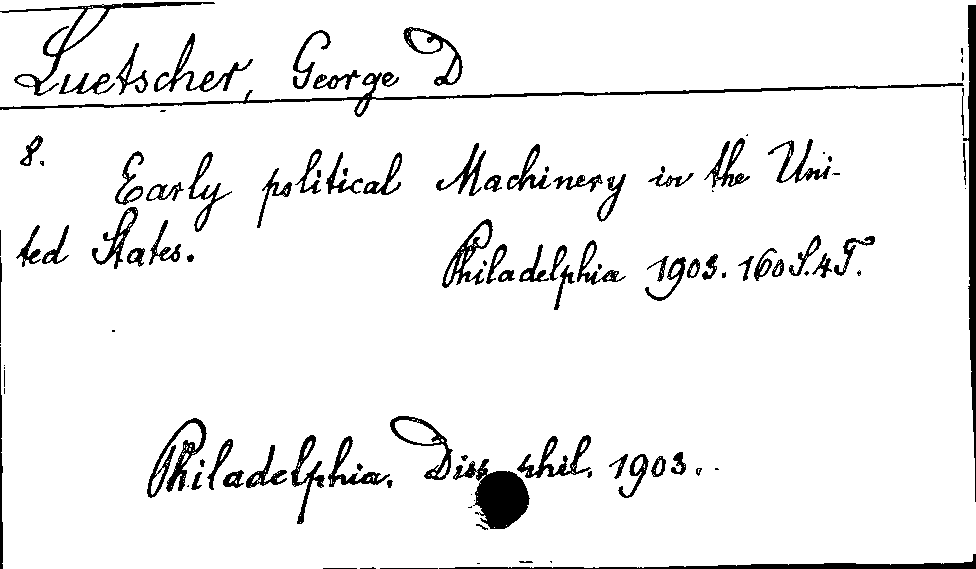 Luetscher, George D
8.
Early political Machinery in the Uni-
ted States.
Philadelphia 1903. 160 S. 4 T.
Philadelphia. Diss. phil. 1903.